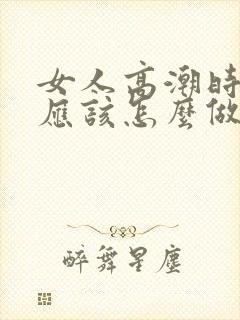 女人高潮時
應該怎麼做
醉舞星塵